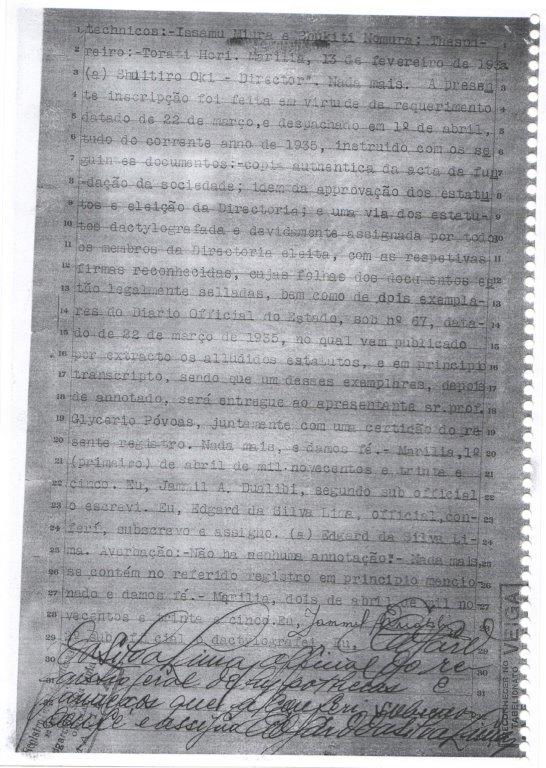 technicos:-Issamu Miura e Goukiti Nomura; Thesou-
reiro:-Torati Hori. Marilia, 13 de fevereiro de 193
(a) Shuitiro Oki - Director". Nada mais. A presen
te inscripção foi feita em virtude da requerimento
datado de 22 de março,e despachado em 1º de abril,
tudo do corrente anno de 1935, instruido com os se
guintes documentos:-copia authentica da acta da fun
dação da sociedade; idem da approvação dos estatu
tos e eleição da Directoria; e uma via dos estatu-
tos dactylografada e devidamente assignada por todos
os membros da Directoria eleita, com as respetivas
firmas reconhecidas, cujas folhas dos documentos es
tão legalmente selladas, bem como de dois exempla-
res do Diario Official do Estado, sob nº 67, data-
do de 22 de março de 1935, no qual vem publicado
por extracto os alludidos estatutos, e em principio
transcripto, sendo que um desses exemplares, depois
de annotado, será entregue ao apresentante sr.prof.
Glycerio Póvoas, juntamente com uma certidão do re
sente registro. Nada mais, e damos fé.- Marilia,1º
(primeiro) de abril de mil novecentos e trinta e
cinco. Eu, Jammil A. Dualibi, segundo sub official
o escrevi. Eu, Edgard da Silva Lima, official,con-
feri, subscrevo e assigno. (a) Edgard da Silva Li-
ma. Averbação:-Não ha nenhuma annotação!- Nada mais
se contém no referido registro em principio mencio-
nado e damos fé.- Marilia, dois de abril de mil no
vecentos e trinta e cinco.Eu, Jammil
sub official o dactylografei. Eu, Edgard
da Silva Lima, official do re
gistro geral de hypothecas e
annexos que a conferi, subscrevo
dou fé e assigno Edgar da Silva Lima
VEIGA
TABELIONATO